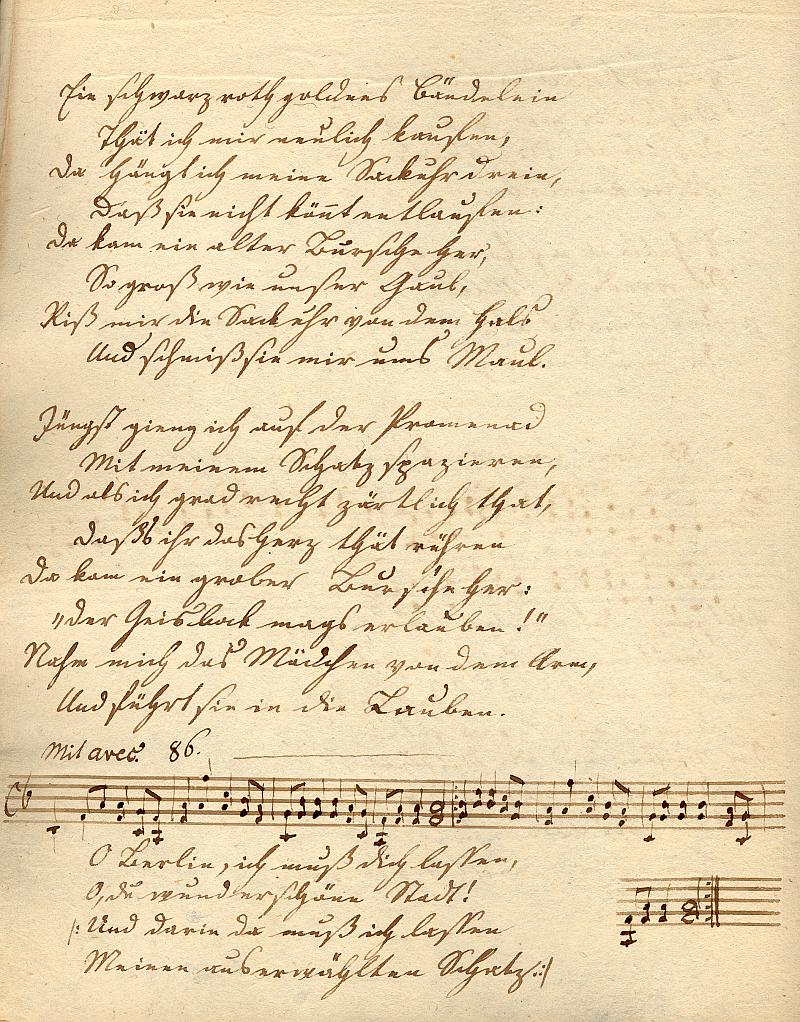 Ein schwarz roth goldnes Bändelein
That ich mir neulich kaufen,
Da hängt ich meine Sackuhr drein,
Daß sie nicht könnt entlaufen:
Da kam ein alter Bursche her,
So groß wie unser Gaul,
Riß mir die Sackuhr von dem Hals
Und schmiß sie mir ums Maul.
Jüngst gieng ich auf der Promenad
Mit meinem Schatz spazieren,
Und als ich grad recht zärtlich that,
Daß's ihr das Herz thät rühren
Da kam ein grober Bursche her:
"Der Geisbock mags erlauben!"
Nahm mich das Mädchen von dem Arm,
Und führt sie in die Lauben.
Mit avec. 86.
O Berlin, ich muß dich lassen,
O, du wunderschöne Stadt!
|: Und darin da muß ich lassen
Meinen auserwählten Schatz :|